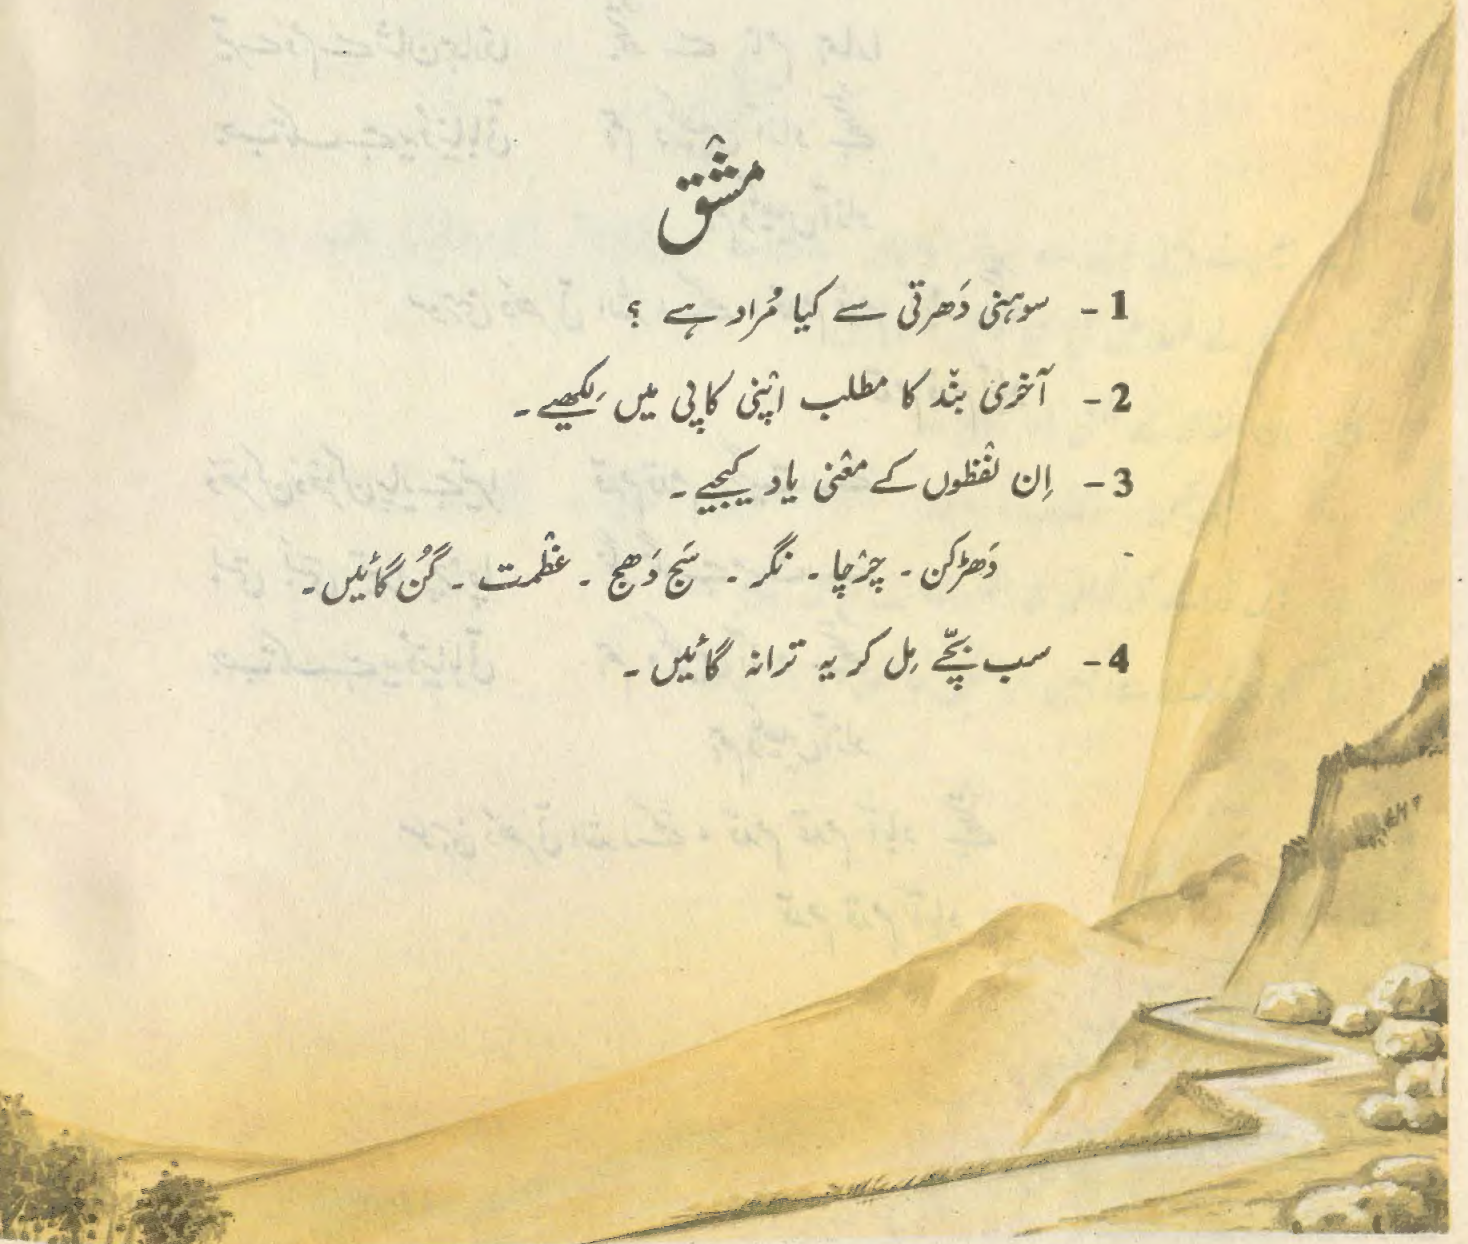 مشق
1- سوہنی دَھرتی سے کیا مُراد ہے ؟
2- آخری بنْد کا مطلب اپنی کاپی میں لِکھیے۔
3- اِن لفْظوں کے معْنی یاد کیجیے۔
دَھڑکن ۔ چرْچا ۔ نگر ۔ سَج دَھج ۔ عظْمت ۔ گُن گائیں۔
4- سب بچّے مِل کر یہ ترانہ گائیں ۔